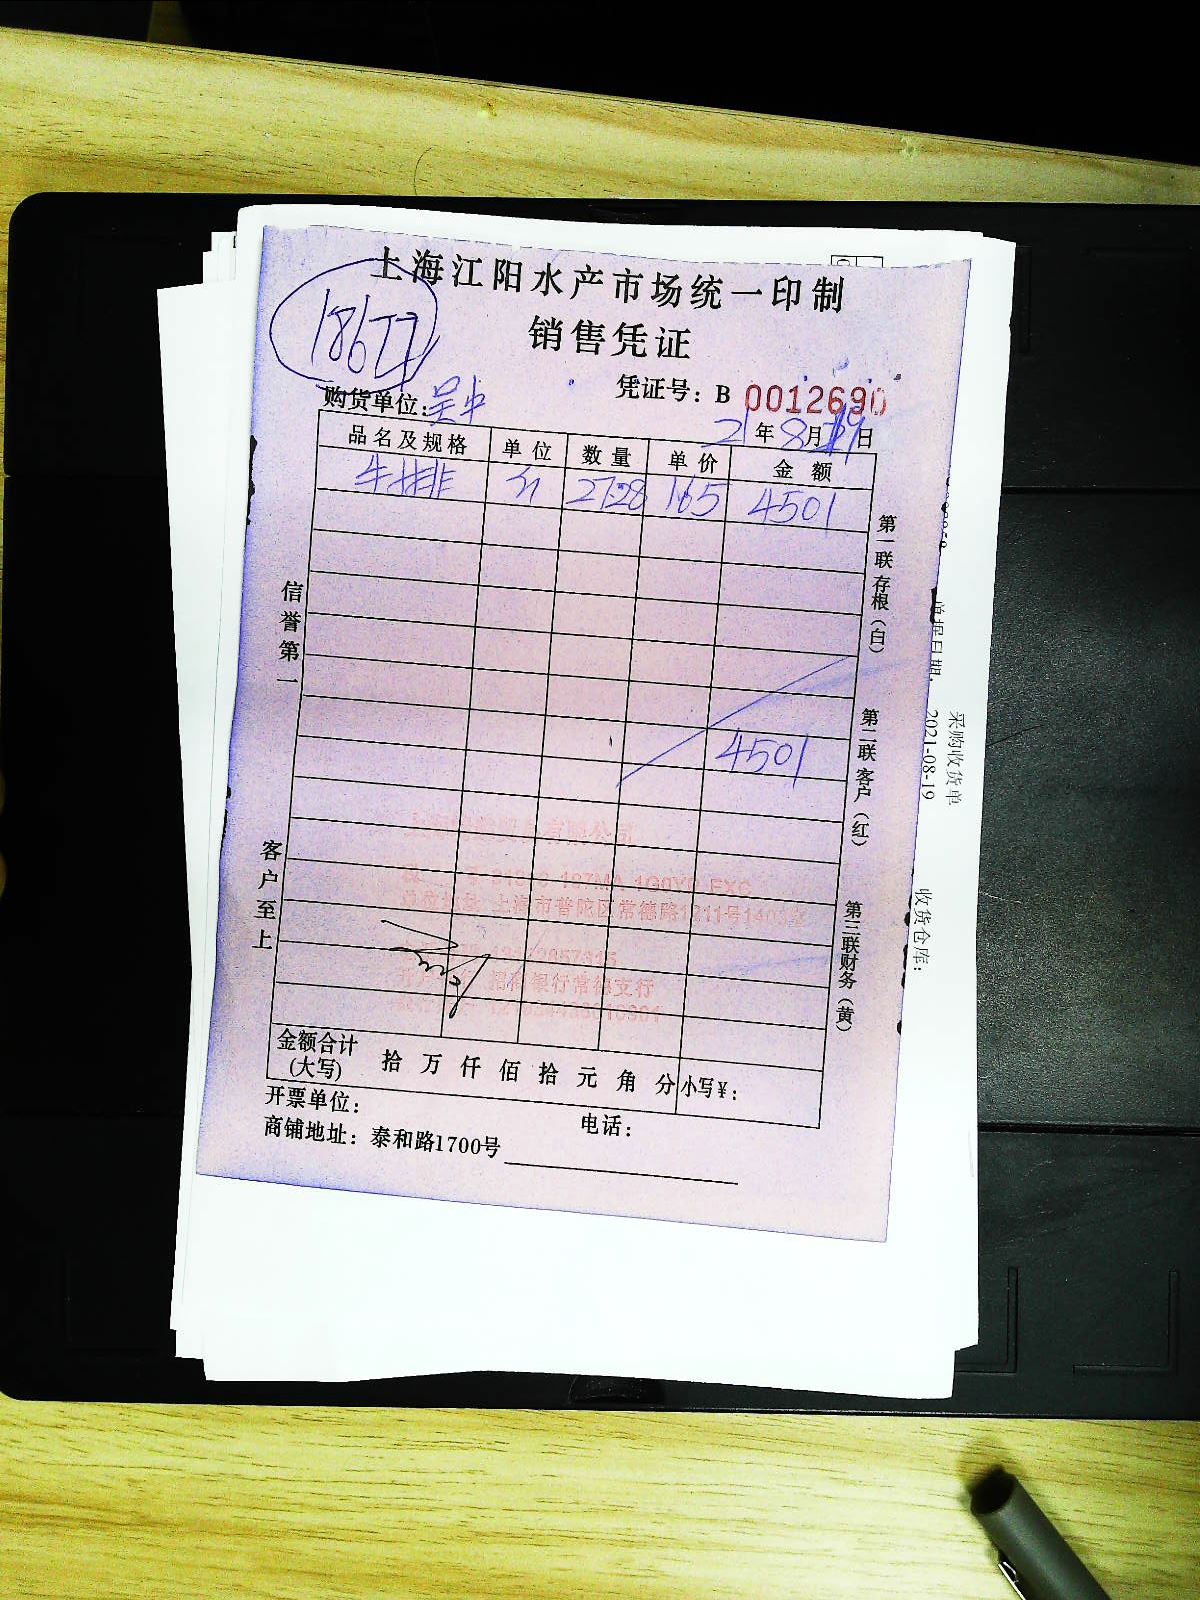 上海江阳水产市场统一印制
销售凭证
18677
凭证号：B 0012690
购货单位：吴中
21年8月19日
品名及规格 单位 数量 单价 金额
牛排 27.28 165 4501
4501
信誉第一
客户至上
第一联存根（白）
第二联客户（红）
第三联财务（黄）
上海市普陀区常德路1211号140
招商银行常德支行
金额合计
(大写) 拾万仟佰拾元角分 小写¥：
开票单位： 电话：
商铺地址：泰和路1700号
采购收货单
单据日期： 2021-08-19
收货仓库：